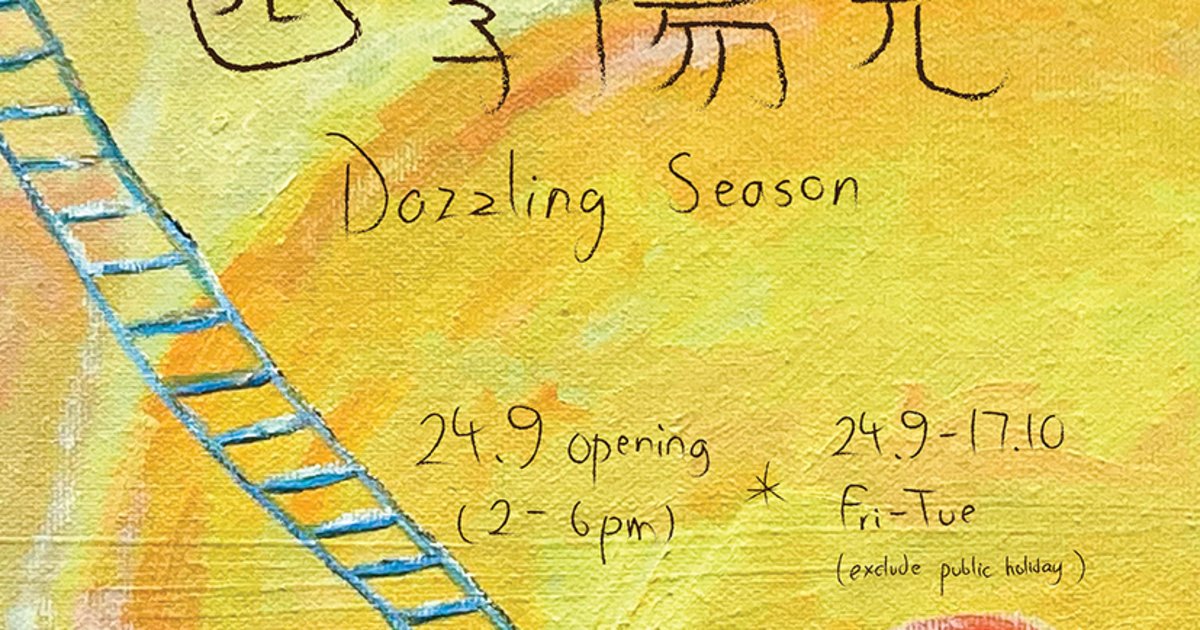 Dazzling Season
24.9 opening
(2-6pm)
*
24.9-17.10
Fri-Tue
(exclude public holiday)